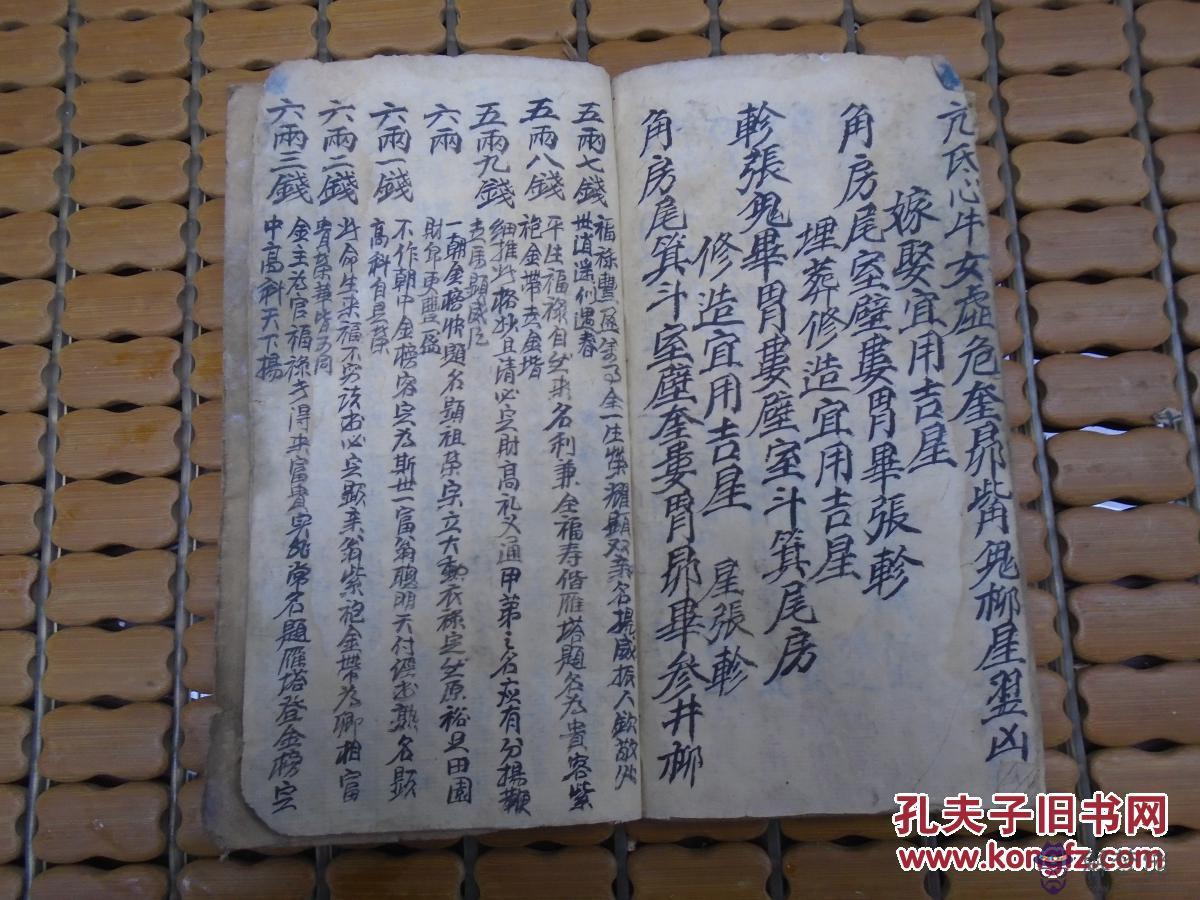 亢氐心牛女虛危奎昴觜鬼柳星翌凶
嫁娶宜用吉星
角房尾室壁婁胃畢張軫
埋葬修造宜用吉星
軫張鬼畢胃婁壁室斗箕尾房
修造宜用吉星
角房尾箕斗室壁奎婁胃昴畢參井柳
星張軫
五兩七錢
福祿豐盈萬事全一生榮耀顯双親名揚威振人欽敬处
世逍遥似遇春
五兩八錢
平生福祿自然来名利兼全福寿偕雁塔題名為貴客紫
袍金帶走金堦
五兩九錢
細推此格妙且清必定財高礼义通甲第之名应有分揚鞭
走馬顯威
六兩
一朝金榜快顯名顯祖榮宗立大勳衣祿定然原裕足田園
財帛更豐盈
六兩一錢
不作朝中金榜客定為斯世一富翁聰明天付經书熟名顯
高科自是榮
六兩二錢
此命生来福不穷读书必定顯亲翁紫袍金帶為卿相富
貴榮華皆可同
六兩三錢
金主為官福祿方得来富貴实非常名題雁塔登金榜定
中高科天下揚
孔夫子旧书网
www.kongfz.com